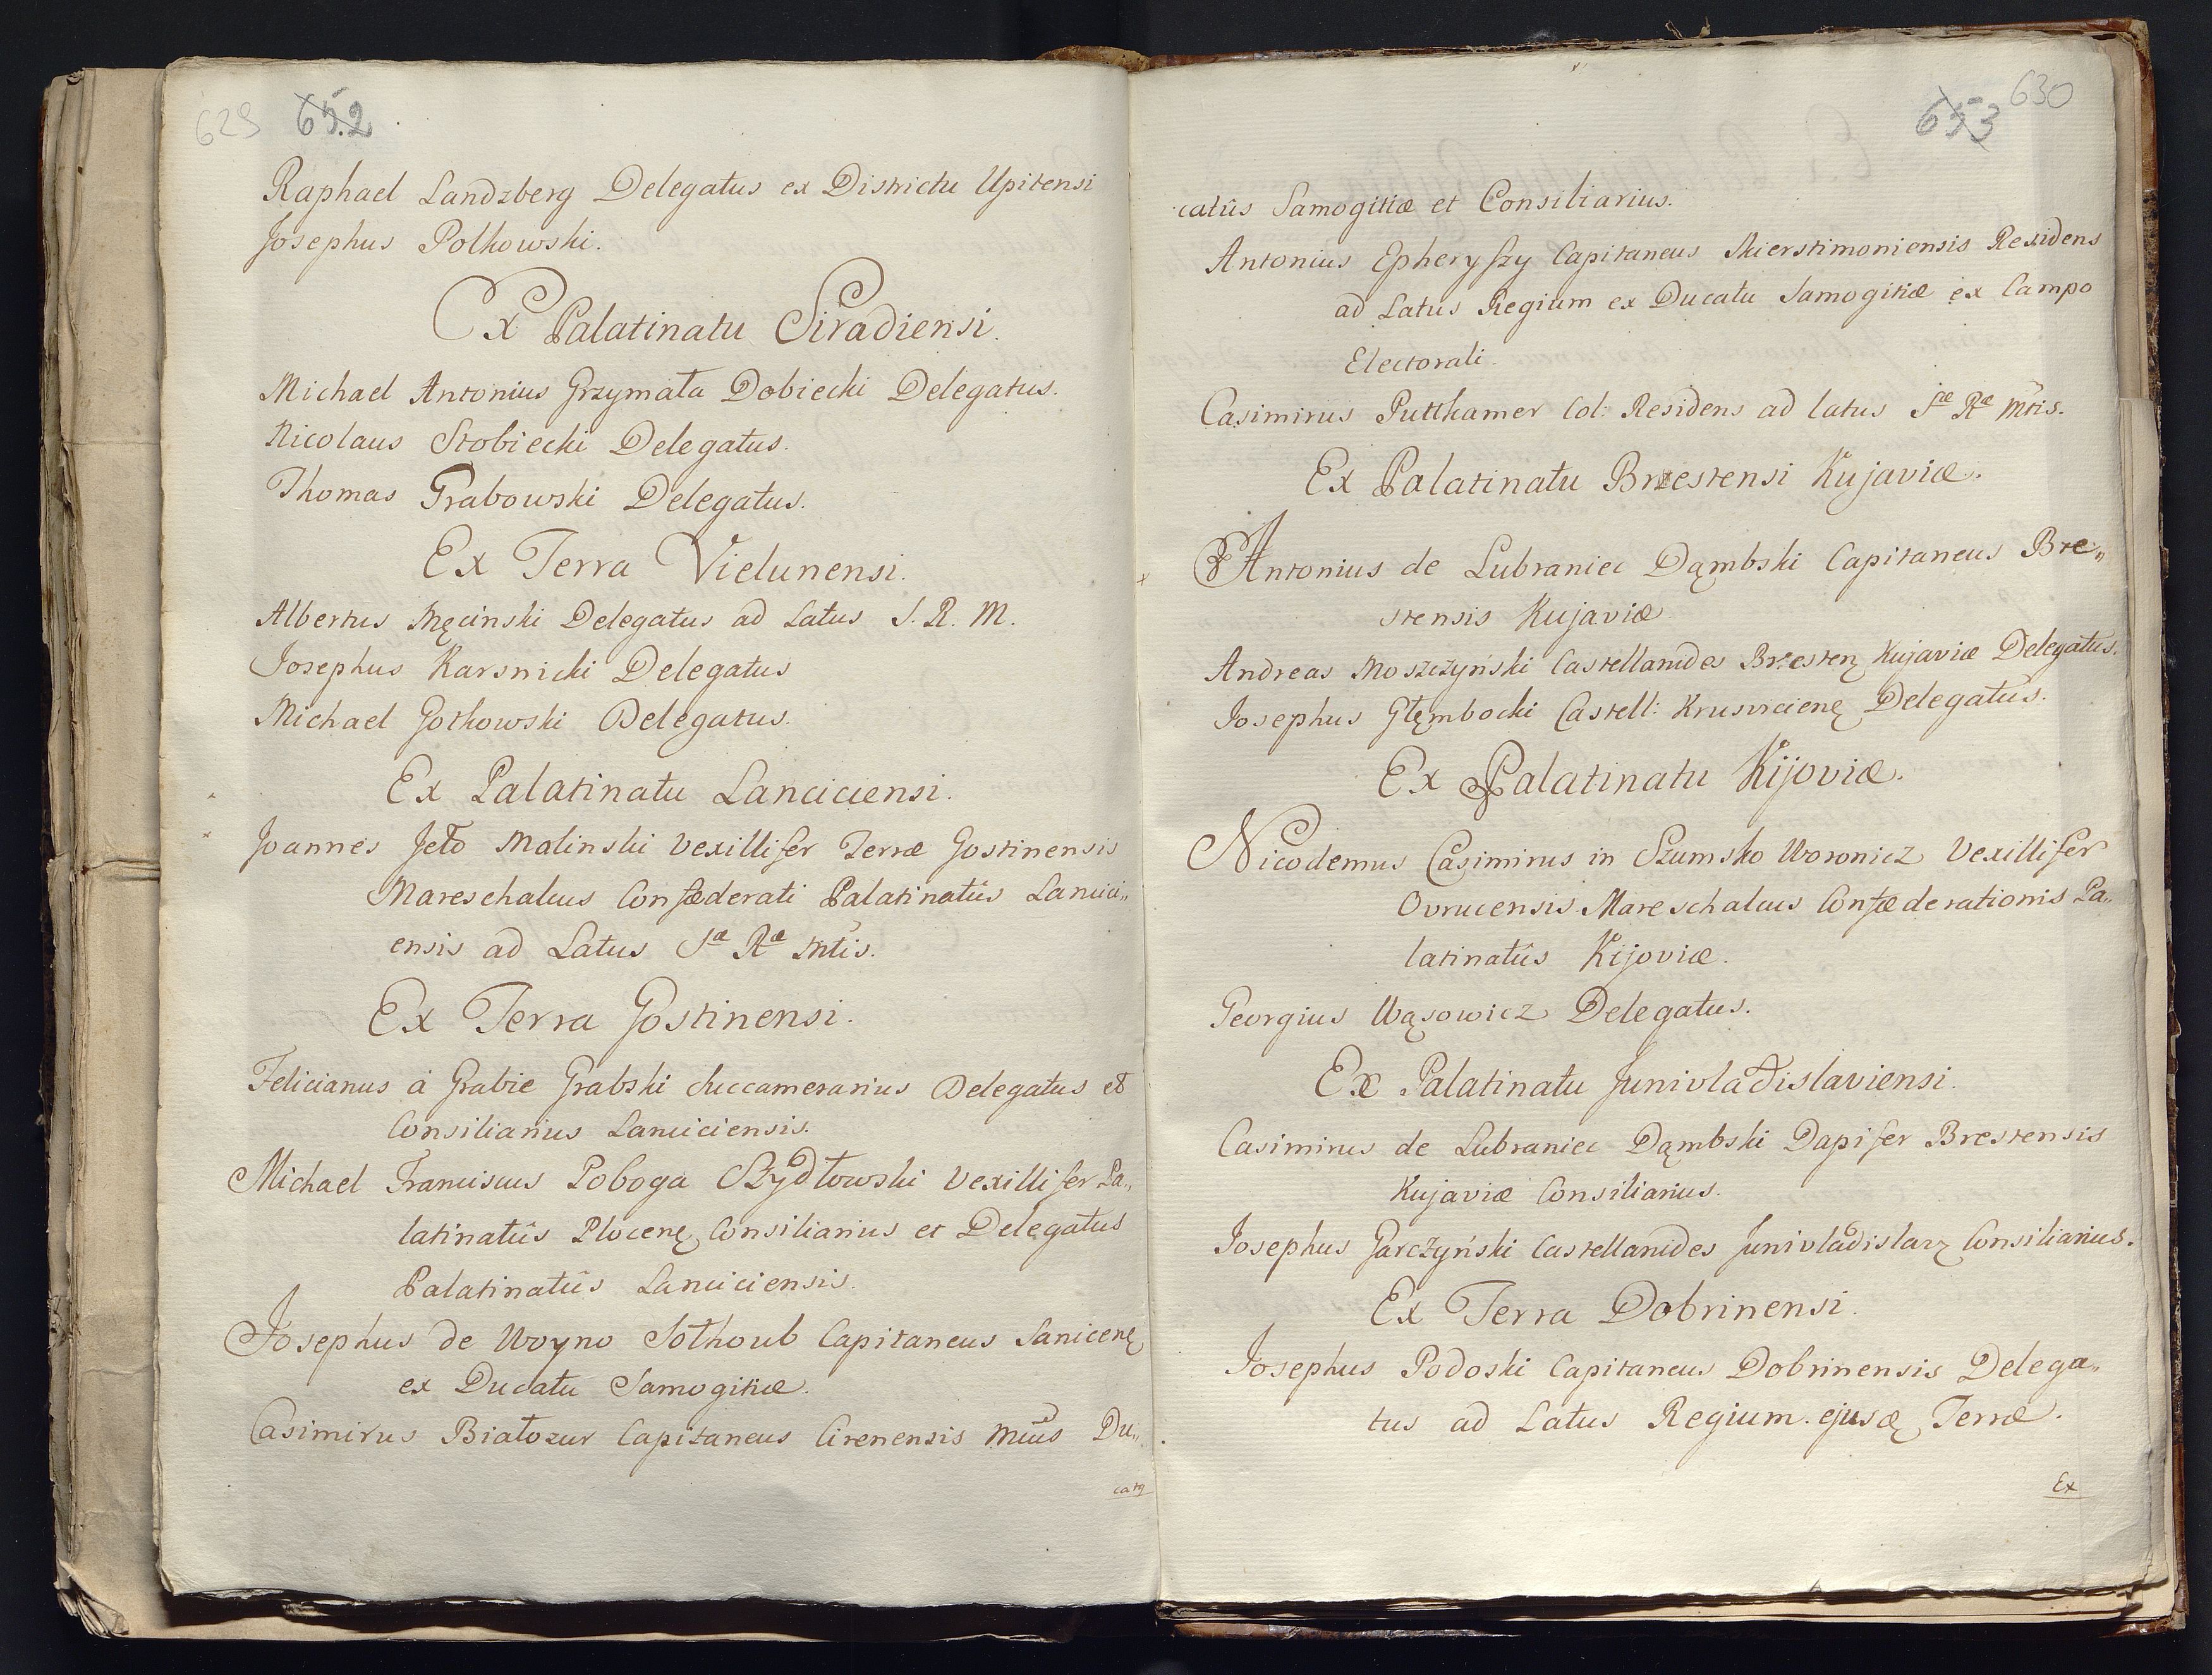 629 65.2
Raphael Landzberg Delegatus ex Districtu Upitensi
Josephus Polkowski.
Ex Palatinatu Siradiensi.
Michael Antonius Grzymała Dobiecki Delegatus.
Nicolaus Stobiecki Delegatus.
Thomas Grabowski Delegatus.
Ex Terra Vielunensi.
Albertus Męcinski Delegatus ad Latus S. R. M.
Josephus Karsnicki Delegatus
Michael Gotkowski Delegatus.
Ex Palatinatu Lanciciensi.
Joannes Jeło Malinski Vexillifer Terræ Gostinensis
Mareschalcus Confæderati Palatinatûs Lancici„
ensis ad Latus Sæ Ræ Mtis.
Ex Terra Gostinensi.
Felicianus à Grabie Grabski Succamerarius Delegatus et
Consiliarius Lanciciensis.
Michael Franciscus Poboga Szydłowski Vexillifer Pa„
latinatûs Plocenę Consiliarius et Delegatus
Palatinatûs Lanciciensis.
Josephus de Woyno Sołhoub Capitaneus Sanicenę
ex Ducatu Samogitiæ.
Casimirus Białozur Capitaneus Cirenensis Mûs Du„
catq
653 630
catûs Samogitiæ et Consiliarius.
Antonius Epheryszy Capitaneus Skierstimoniensis Residens
ad Latus Regium ex Ducatu Samogitiæ ex Campo
Electorali.
Casimirus Putthamer Col: Residens ad latus Sæ Ræ Mtis.
Ex Palatinatu Brzestensi Kujaviæ.
Antonius de Lubraniec Dąmbski Capitaneus Bre„
stensis Kujaviæ
Andreas Moszczyński Castellanides Brzestenę Kujaviæ Delegatus.
Josephus Głęmbocki Castell: Krusvicienę Delegatus.
Ex Palatinatu Kijoviæ.
Nicodemus Casimirus in Szumsko Woronicz Vexillifer
Ovrucensis Mareschalcus Confæderationis Pa„
latinatûs Kijoviæ.
Georgius Wąsowicz Delegatus.
Ex Palatinatu Junivladislaviensi.
Casimirus de Lubraniec Dąmbski Dapifer Brestensis
Kujaviæ Consiliarius.
Josephus Garczyński Castellanides Junivladislavę Consiliarius.
Ex Terra Dobrinensi.
Josephus Podoski Capitaneus Dobrinensis Delega„
tus ad Latus Regium ejusdę Terræ.
Ex